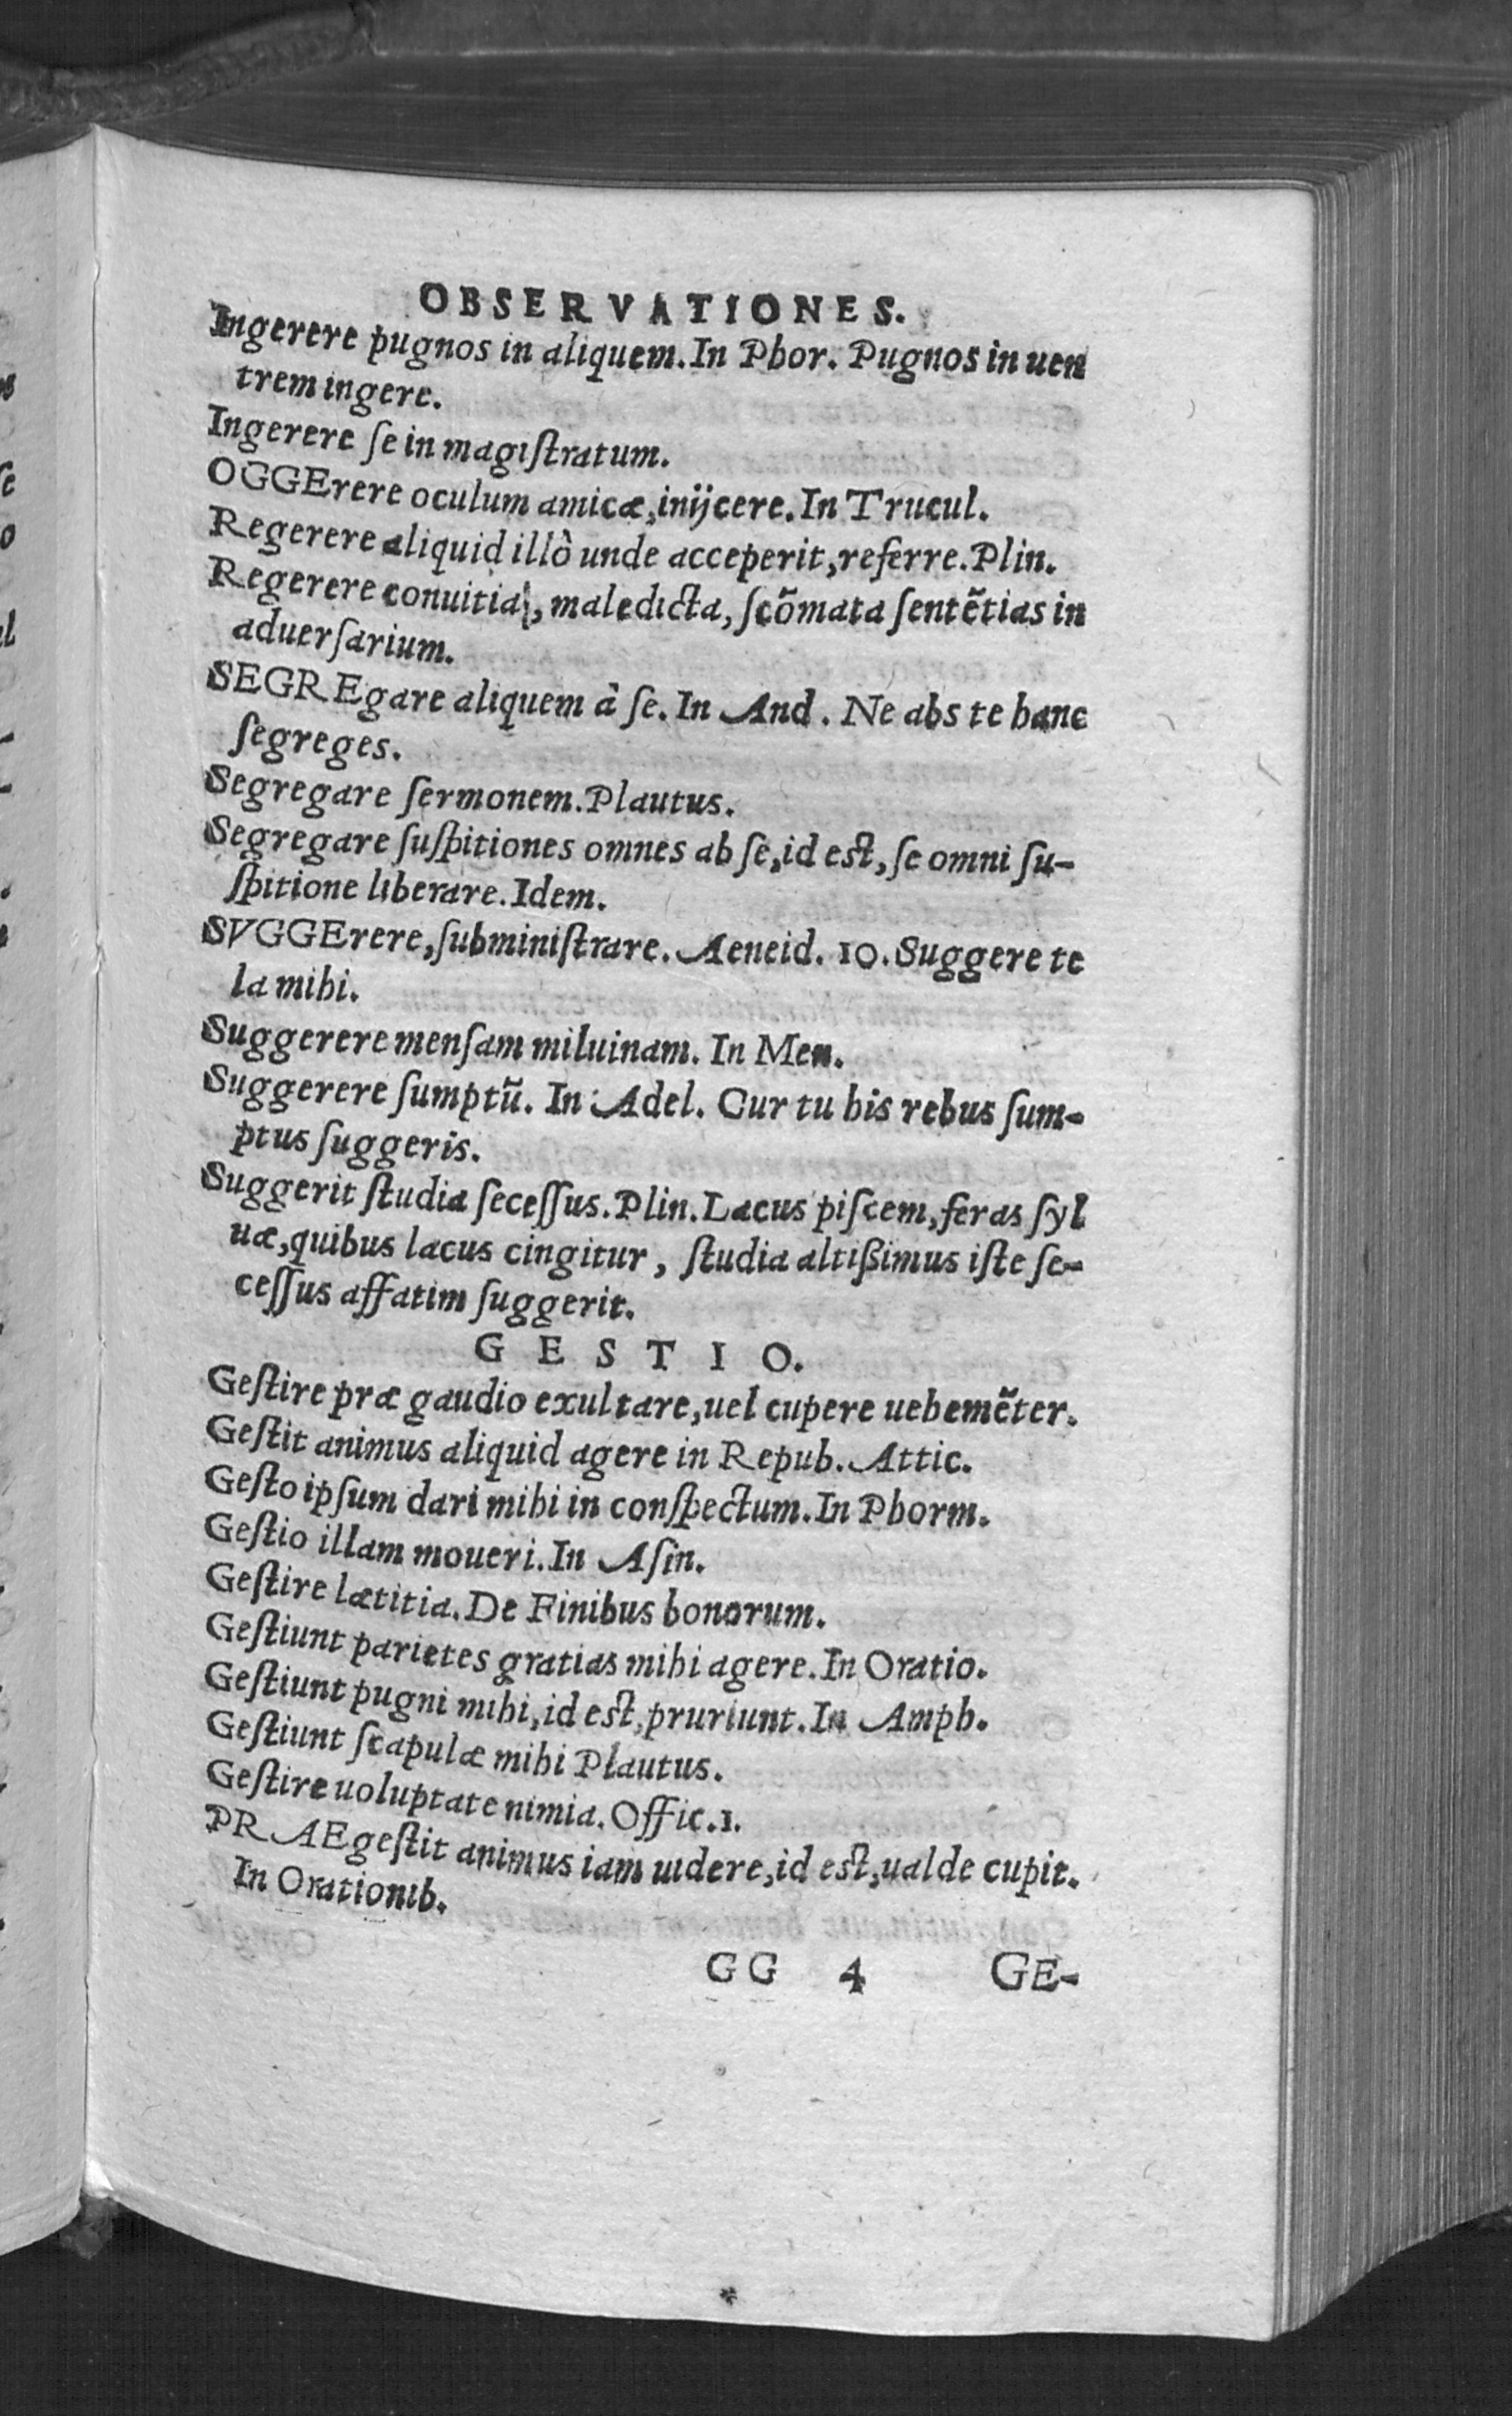 OBSERVATIONES.
Ingerere pugnos in aliquem. In Phor. Pugnos in uen
trem ingere.
Ingerere ſe in magiſtratum.
OGGErere oculum amicæ, inijcere. In Trucul.
Regerere aliquid illò unde acceperit, referre. Plin.
Regerere conuitia, maledicta, ſcōmata ſentētias in
aduerſarium.
SEGREgare aliquem à ſe. In And. Ne abs te hanc
ſegreges.
Segregare ſermonem. Plautus.
Segregare ſuſpitiones omnes ab ſe, id eſt, ſe omni ſu-
ſpitione liberare. Idem.
SVGGErere, ſubminiſtrare. Aeneid. 10. Suggere te
la mihi.
Suggerere menſam miluinam. In Men.
Suggerere ſumptū. In Adel. Cur tu his rebus ſum-
ptus ſuggeris.
Suggerit ſtudia ſeceſſus. Plin. Lacus piſcem, feras ſyl
uæ, quibus lacus cingitur, ſtudia altißimus iſte ſe-
ceſſus affatim ſuggerit.
GESTIO.
Geſtire præ gaudio exultare, uel cupere uehemēter.
Geſtit animus aliquid agere in Repub. Attic.
Geſto ipſum dari mihi in conſpectum. In Phorm.
Geſtio illam moueri. In Aſin.
Geſtire lætitia. De Finibus bonorum.
Geſtiunt parietes gratias mihi agere. In Oratio.
Geſtiunt pugni mihi, id eſt, pruriunt. In Amph.
Geſtiunt ſcapulæ mihi Plautus.
Geſtire uoluptate nimia. Offic. 1.
PRAEgeſtit animus iam uidere, id eſt, ualde cupit.
In Orationib.
GG 4 GE-